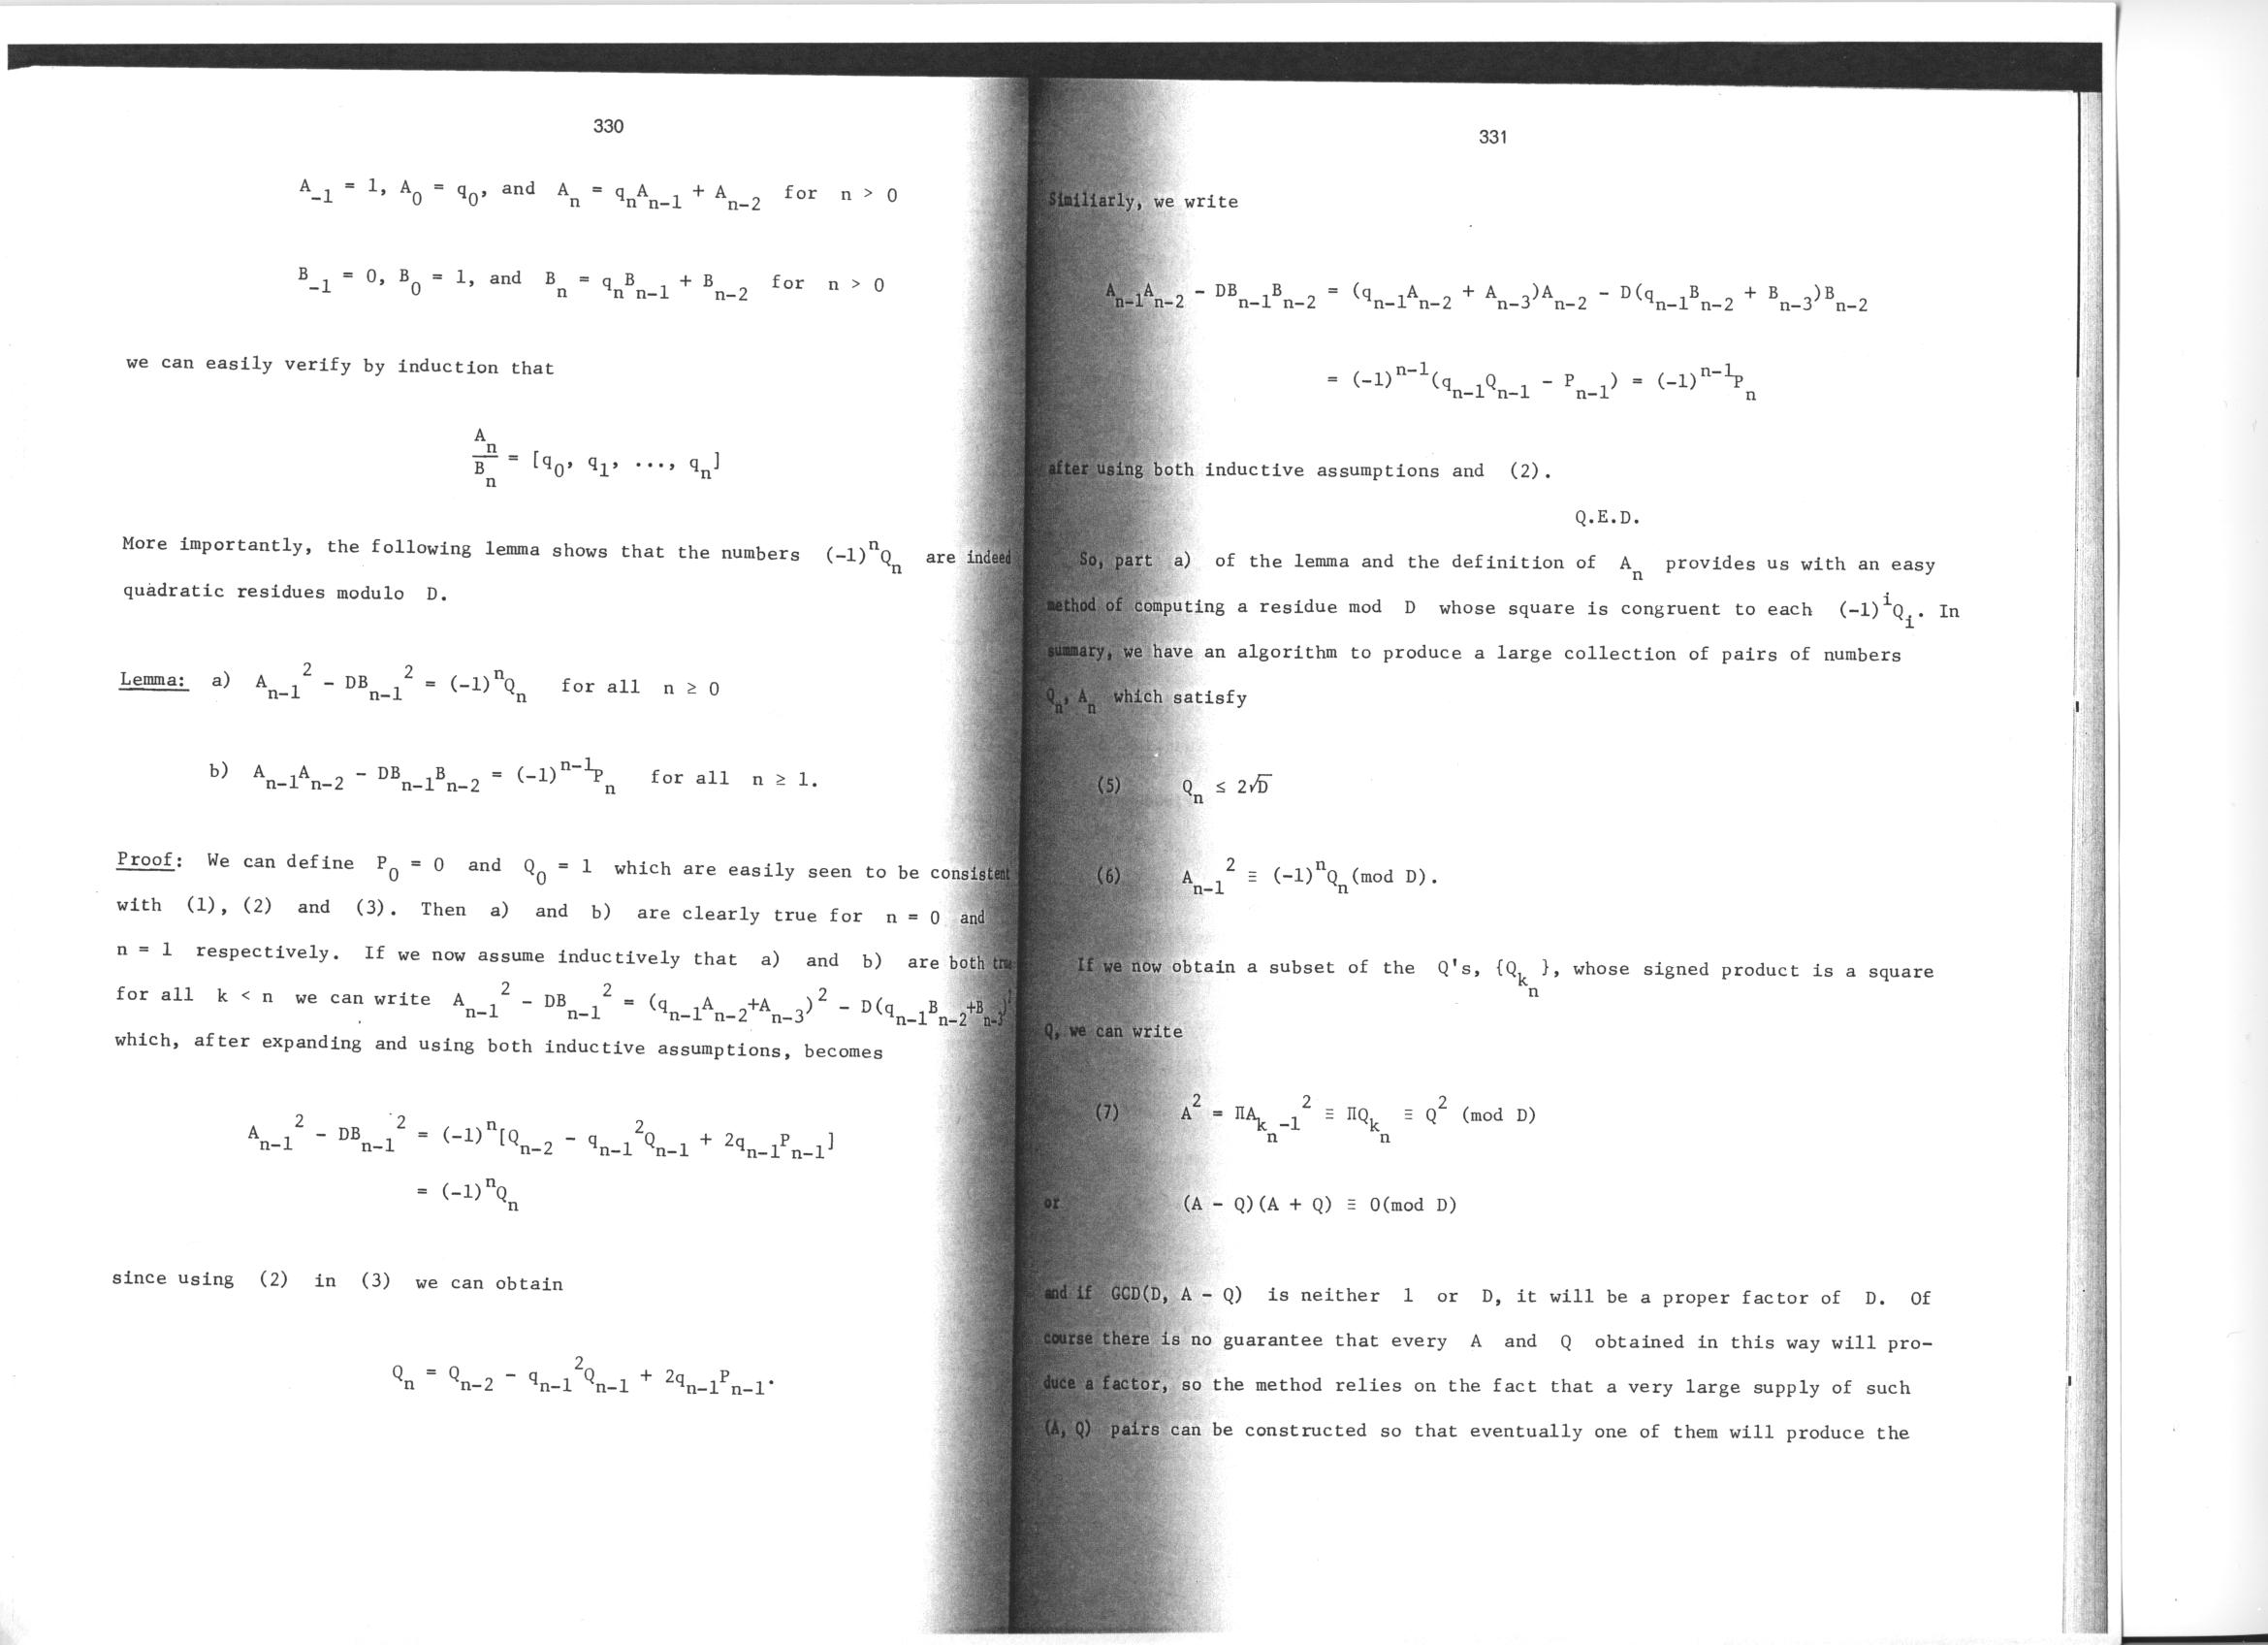 330
A_{-1} = 1, A_0 = q_0, and A_n = q_nA_{n-1} + A_{n-2} for n > 0
B_{-1} = 0, B_0 = 1, and B_n = q_nB_{n-1} + B_{n-2} for n > 0
we can easily verify by induction that
A_n/B_n = [q_0, q_1, ..., q_n]
More importantly, the following lemma shows that the numbers (-1)^nQ_n are indeed
quadratic residues modulo D.
Lemma: a) A_{n-1}^2 - DB_{n-1}^2 = (-1)^nQ_n for all n ≥ 0
b) A_{n-1}A_{n-2} - DB_{n-1}B_{n-2} = (-1)^{n-1}P_n for all n ≥ 1.
Proof: We can define P_0 = 0 and Q_0 = 1 which are easily seen to be consistent
with (1), (2) and (3). Then a) and b) are clearly true for n = 0 and
n = 1 respectively. If we now assume inductively that a) and b) are both true
for all k < n we can write A_{n-1}^2 - DB_{n-1}^2 = (q_{n-1}A_{n-2}+A_{n-3})^2 - D(q_{n-1}B_{n-2}+B_{n-3})^2
which, after expanding and using both inductive assumptions, becomes
A_{n-1}^2 - DB_{n-1}^2 = (-1)^n[Q_{n-2} - q_{n-1}^2Q_{n-1} + 2q_{n-1}P_{n-1}]
= (-1)^nQ_n
since using (2) in (3) we can obtain
Q_n = Q_{n-2} - q_{n-1}^2Q_{n-1} + 2q_{n-1}P_{n-1}.
331
Similiarly, we write
A_{n-1}A_{n-2} - DB_{n-1}B_{n-2} = (q_{n-1}A_{n-2} + A_{n-3})A_{n-2} - D(q_{n-1}B_{n-2} + B_{n-3})B_{n-2}
= (-1)^{n-1}(q_{n-1}Q_{n-1} - P_{n-1}) = (-1)^{n-1}P_n
after using both inductive assumptions and (2).
Q.E.D.
So, part a) of the lemma and the definition of A_n provides us with an easy
method of computing a residue mod D whose square is congruent to each (-1)^iQ_i. In
summary, we have an algorithm to produce a large collection of pairs of numbers
Q_n, A_n which satisfy
(5) Q_n ≤ 2√D
(6) A_{n-1}^2 ≡ (-1)^nQ_n(mod D).
If we now obtain a subset of the Q's, {Q_{k_n}}, whose signed product is a square
Q, we can write
(7) A^2 = ΠA_{k_n-1}^2 ≡ ΠQ_{k_n} ≡ Q^2 (mod D)
or (A - Q)(A + Q) ≡ 0(mod D)
and if GCD(D, A - Q) is neither 1 or D, it will be a proper factor of D. Of
course there is no guarantee that every A and Q obtained in this way will pro-
duce a factor, so the method relies on the fact that a very large supply of such
(A, Q) pairs can be constructed so that eventually one of them will produce the